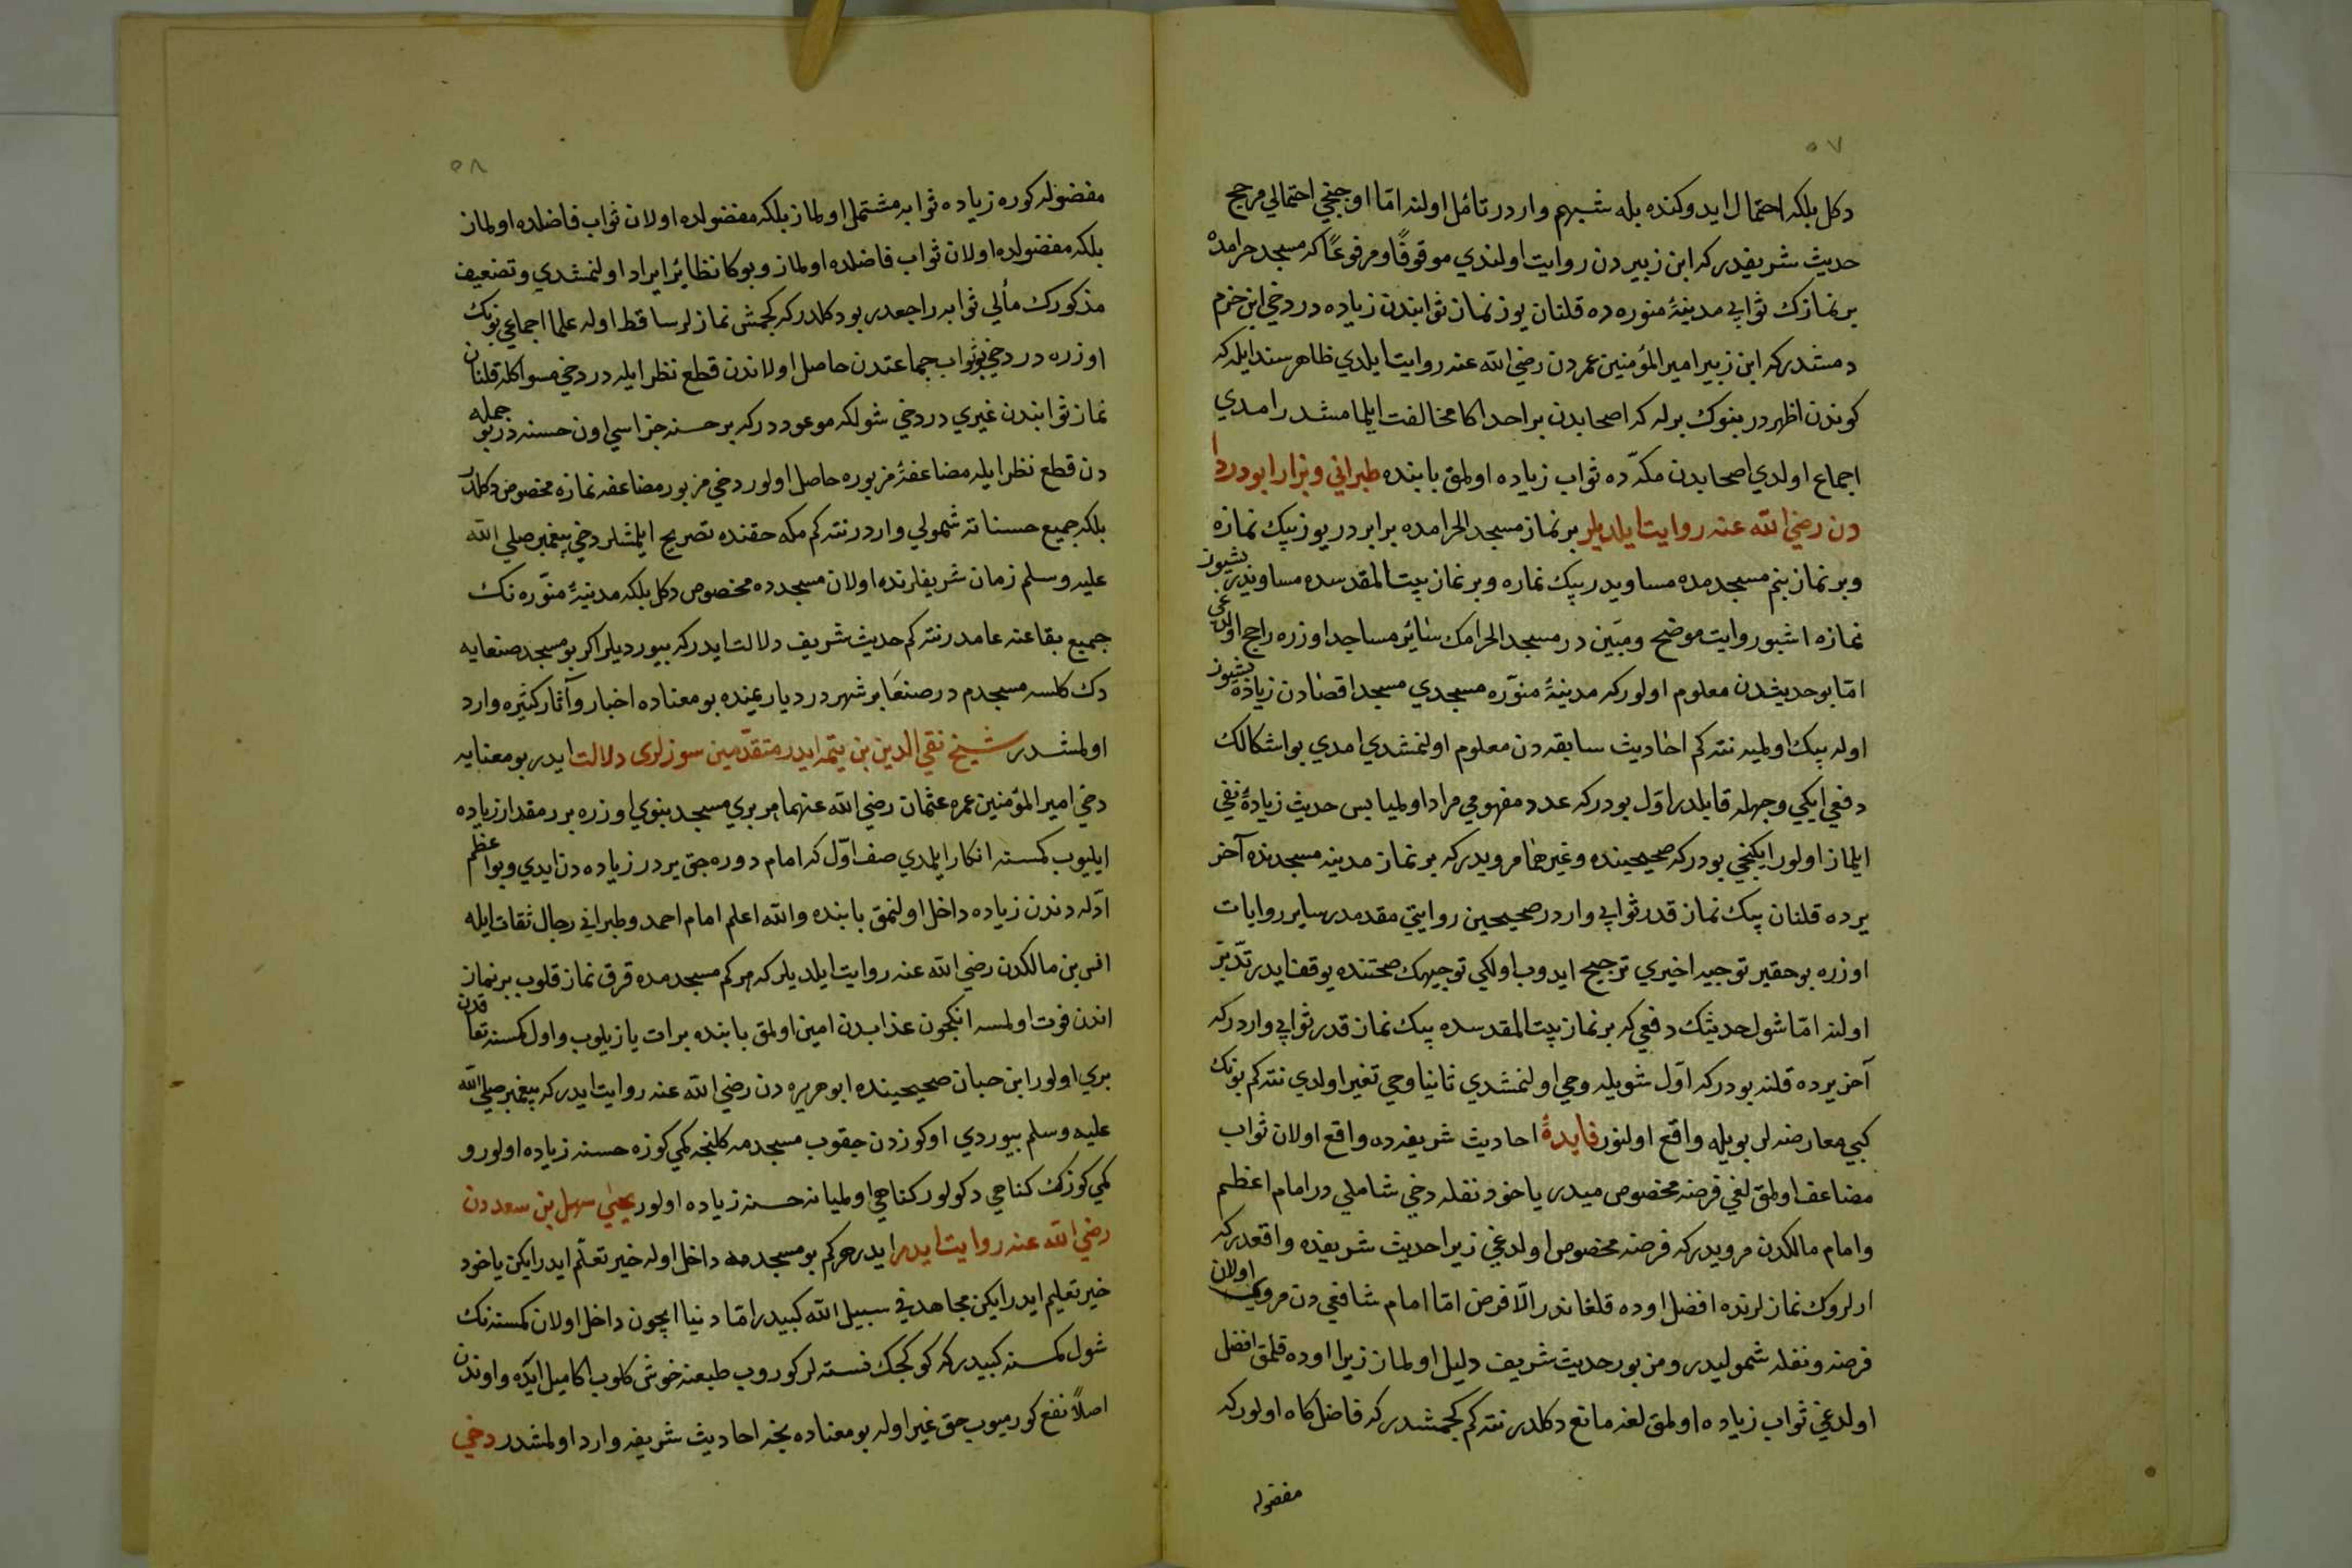 ٥٧
دكل بلكه احتمال ايدوكنده بله شبهم واردر تأمل اولنه امّا اوجنجي احتمالي مرجح
حديث شريفدركه ابن زبيردن روايت اولندي موقوفًا ومرفوعًا كه مسجد حرامده
بر نمازك ثوابي مدينهٔ منوره ده قلنان يوز نماز ثوابندن زياده در دخي ابن حزم
دمشدركه ابن زبير امير المؤمنين عمردن رضي الله عنه روايت ايلدي ظاهر سند ايله كه
كوندن اظهردر بنوك برله كه اصحابدن بر احد اكا مخالفت ايلمامشدر امدي
اجماع اولدي اصحابدن مكّه ده ثواب زياده اولمق بابنده طبراني وبزار ابودردا
دن رضي الله عنه روايت ايلديلر بر نماز مسجد الحرامده برابردر يوز بيك نمازه
وبر نماز بنم مسجدمده مساويدر بيك نمازه وبر نماز بيت المقدسده مساويدر بشيوز
نمازه اشبو روايت موضح ومبَين در مسجد الحرامك سائر مساجد اوزره راجح اولدغى
امّا بو حديثدن معلوم اولوركه مدينهٔ منوّره مسجدي مسجد اقصادن زياده بشيوز
اوله بيك اولميه نته كم احاديث سابقه دن معلوم اولنمشدي امدي بو اشكالك
دفعي ايكي وجهله قابلدر اوّل بودركه عدد مفهومي مراد اولميا بس حديث زيادهٔ نفي
ايلماز اولور ايكنجي بودركه صحيحينده وغيرهما مرويدركه بر نماز مدينه مسجدنده آخر
يرده قلنان بيك نماز قدر ثوابي واردر صحيحين روايتي مقدمدر ساير روايات
اوزره بو حقير توجيه اخيري ترجيح ايدوب اولكي توجيهك صحتنده يوقفايدر تدّبر
اولنه امّا شول حديثك دفعي كه بر نماز بيت المقدسده بيك نماز قدر ثوابي واردركه
آخر يرده قلنه بودركه اوّل شويله وحي اولنمشدي ثانيا وحي تغير اولدي نته كم بونك
كبي معارضه لر بويله واقع اولنور فايدهٔ احاديث شريفه ده واقع اولان ثواب
مضاعف اولمق لغي فرضه مخصوص ميدر ياخود نفله دخي شاملي در امام اعظم
وامام مالكدن مرويدركه فرضه مخصوص اولدغي زيرا حديث شريفده واقعدركه
ارلروك نمازلرنده افضل اوده قلغاندر الّا فرض امّا امام شافعي دن مروي اولان
فرضه ونفله شموليدر ومزبور حديث شريف دليل اولماز زيرا اوده قلمق افضل
اولدغي ثواب زياده اولمق لغنه مانع دكلدر نته كم كجمشدركه فاضل كاه اولوركه
مفضوله
٥٨
مفضوله كوره زياده ثوابه مشتمل اولماز بلكه مفضولده اولان ثواب فاضلده اولماز
بلكه مفضولده اولان ثواب فاضلده اولماز وبوكا نظائر ايراد اولنمشدي وتضعيف
مذكورك مألي ثوابه راجعدر بو دكلدركه كجمش نمازلر ساقط اوله علما اجماعي بونك
اوزره در دخي بو ثواب جماعتدن حاصل اولاندن قطع نظر ايله در دخي مسواكله قلنان
نماز ثوابندن غيري در دخي شولكه موعوددركه بر حسنه جزاسي اون حسنه در بو جمله
دن قطع نظر ايله مضاعفهٔ مزبوره حاصل اولور دخي مزبور مضاعفه نمازه مخصوص دكلدر
بلكه جميع حسناته شمولي واردر نته كم مكه حقنده تصريح ايلمشلر دخي پيغمبر صلي الله
عليه وسلم زمان شريفلرنده اولان مسجدده مخصوص دكل بلكه مدينهٔ منوّره نك
جميع بقاعنه عامدر نته كم حديث شريف دلالت ايدركه بيورديلر اكر بو مسجد صنعايه
دك كلسه مسجدم در صنعَا بر شهردر ديار يمنده بو معناده اخبار وآثار كثيره وارد
اولمشدر شيخ تقي الدين بن يتمه ايدر متقدّمين سوزلرى دلالت ايدر بو معنايه
دخي امير المؤمنين عمر وعثمان رضي الله عنهما هر بري مسجد بنوي اوزره بر مقدار زياده
ايليوب كمسنه انكار ايلمدي صف اوّل كه امام دوره جق يردر زياده دن ايدي وبو اعظم
ادّله دندن زياده داخل اولنمق بابنده والله اعلم امام احمد وطبراني رجال ثقات ايله
انس بن مالكدن رضي الله عنه روايت ايلديلركه هركم مسجدمده قرق نماز قلوب بر نماز
اندن فوت اولمسه انكچون عذابدن امين اولمق بابنده برات يازيلوب واول كمسنه نفاقدن
بري اولور ابن حبان صحيحينده ابو هريره دن رضي الله عنه روايت ايدركه پيغمبر صلي الله
عليه وسلم بيوردي اوكوزدن چقوب مسجدمه كلنجه كمي كوزه حسنه زياده اولور و
كمي كوزك كناهي دكولور كناهي اولميانه حسنه زياده اولور يحيٰي سهل بن سعددن
رضي الله عنه روايت ايدر ايدر هركم بو مسجدمه داخل اوله خير تعلّم ايدر ايكن ياخود
خير تعليم ايدر ايكن مجاهد في سبيل الله كبيدر امّا دنيا ايچون داخل اولان كمسنه نك
شول كمسنه كبيدركه كوكجك نسنه لر كوروب طبعنه خوش كلوب اكا ميل ايده واوندن
اصلاً نفع كورميوب حق غير اوله بو معناده نجه احاديث شريفه وارد اولمشدر دخي